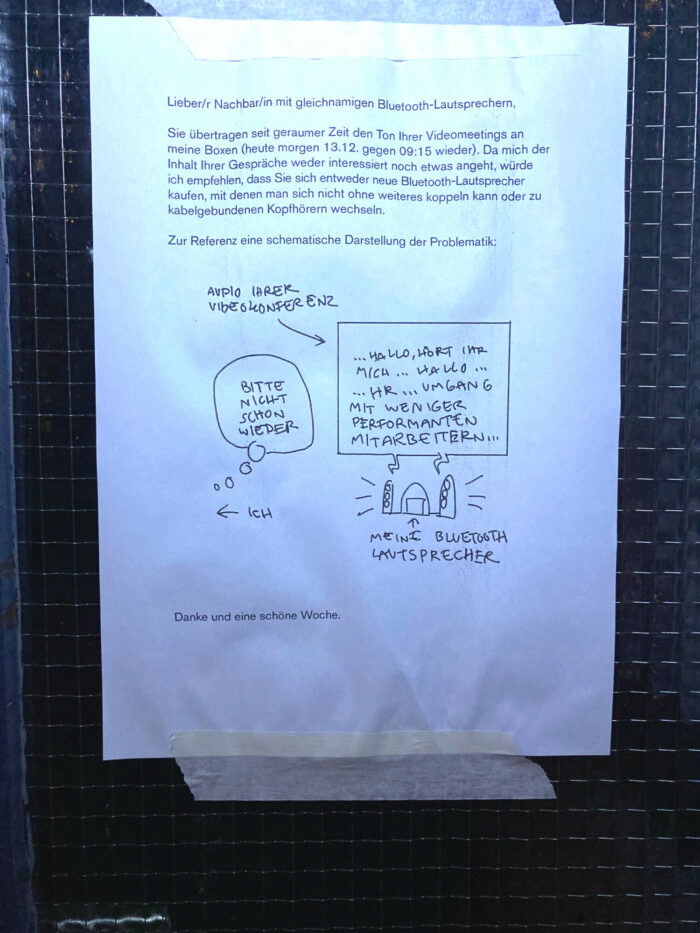 Lieber/r Nachbar/in mit gleichnamigen Bluetooth-Lautsprechern,
Sie übertragen seit geraumer Zeit den Ton Ihrer Videomeetings an
meine Boxen (heute morgen 13.12. gegen 09:15 wieder). Da mich der
Inhalt Ihrer Gespräche weder interessiert noch etwas angeht, würde
ich empfehlen, dass Sie sich entweder neue Bluetooth-Lautsprecher
kaufen, mit denen man sich nicht ohne weiteres koppeln kann oder zu
kabelgebundenen Kopfhörern wechseln.
Zur Referenz eine schematische Darstellung der Problematik:
AUDIO IHRER
VIDEOKONFERENZ
...HALLO, HÖRT IHR
MICH... HALLO...
...HR... UMGANG
MIT WENIGER
PERFORMANTEN
MITARBEITERN...
BITTE
NICHT
SCHON
WIEDER
← ICH
MEINE BLUETOOTH
LAUTSPRECHER
Danke und eine schöne Woche.